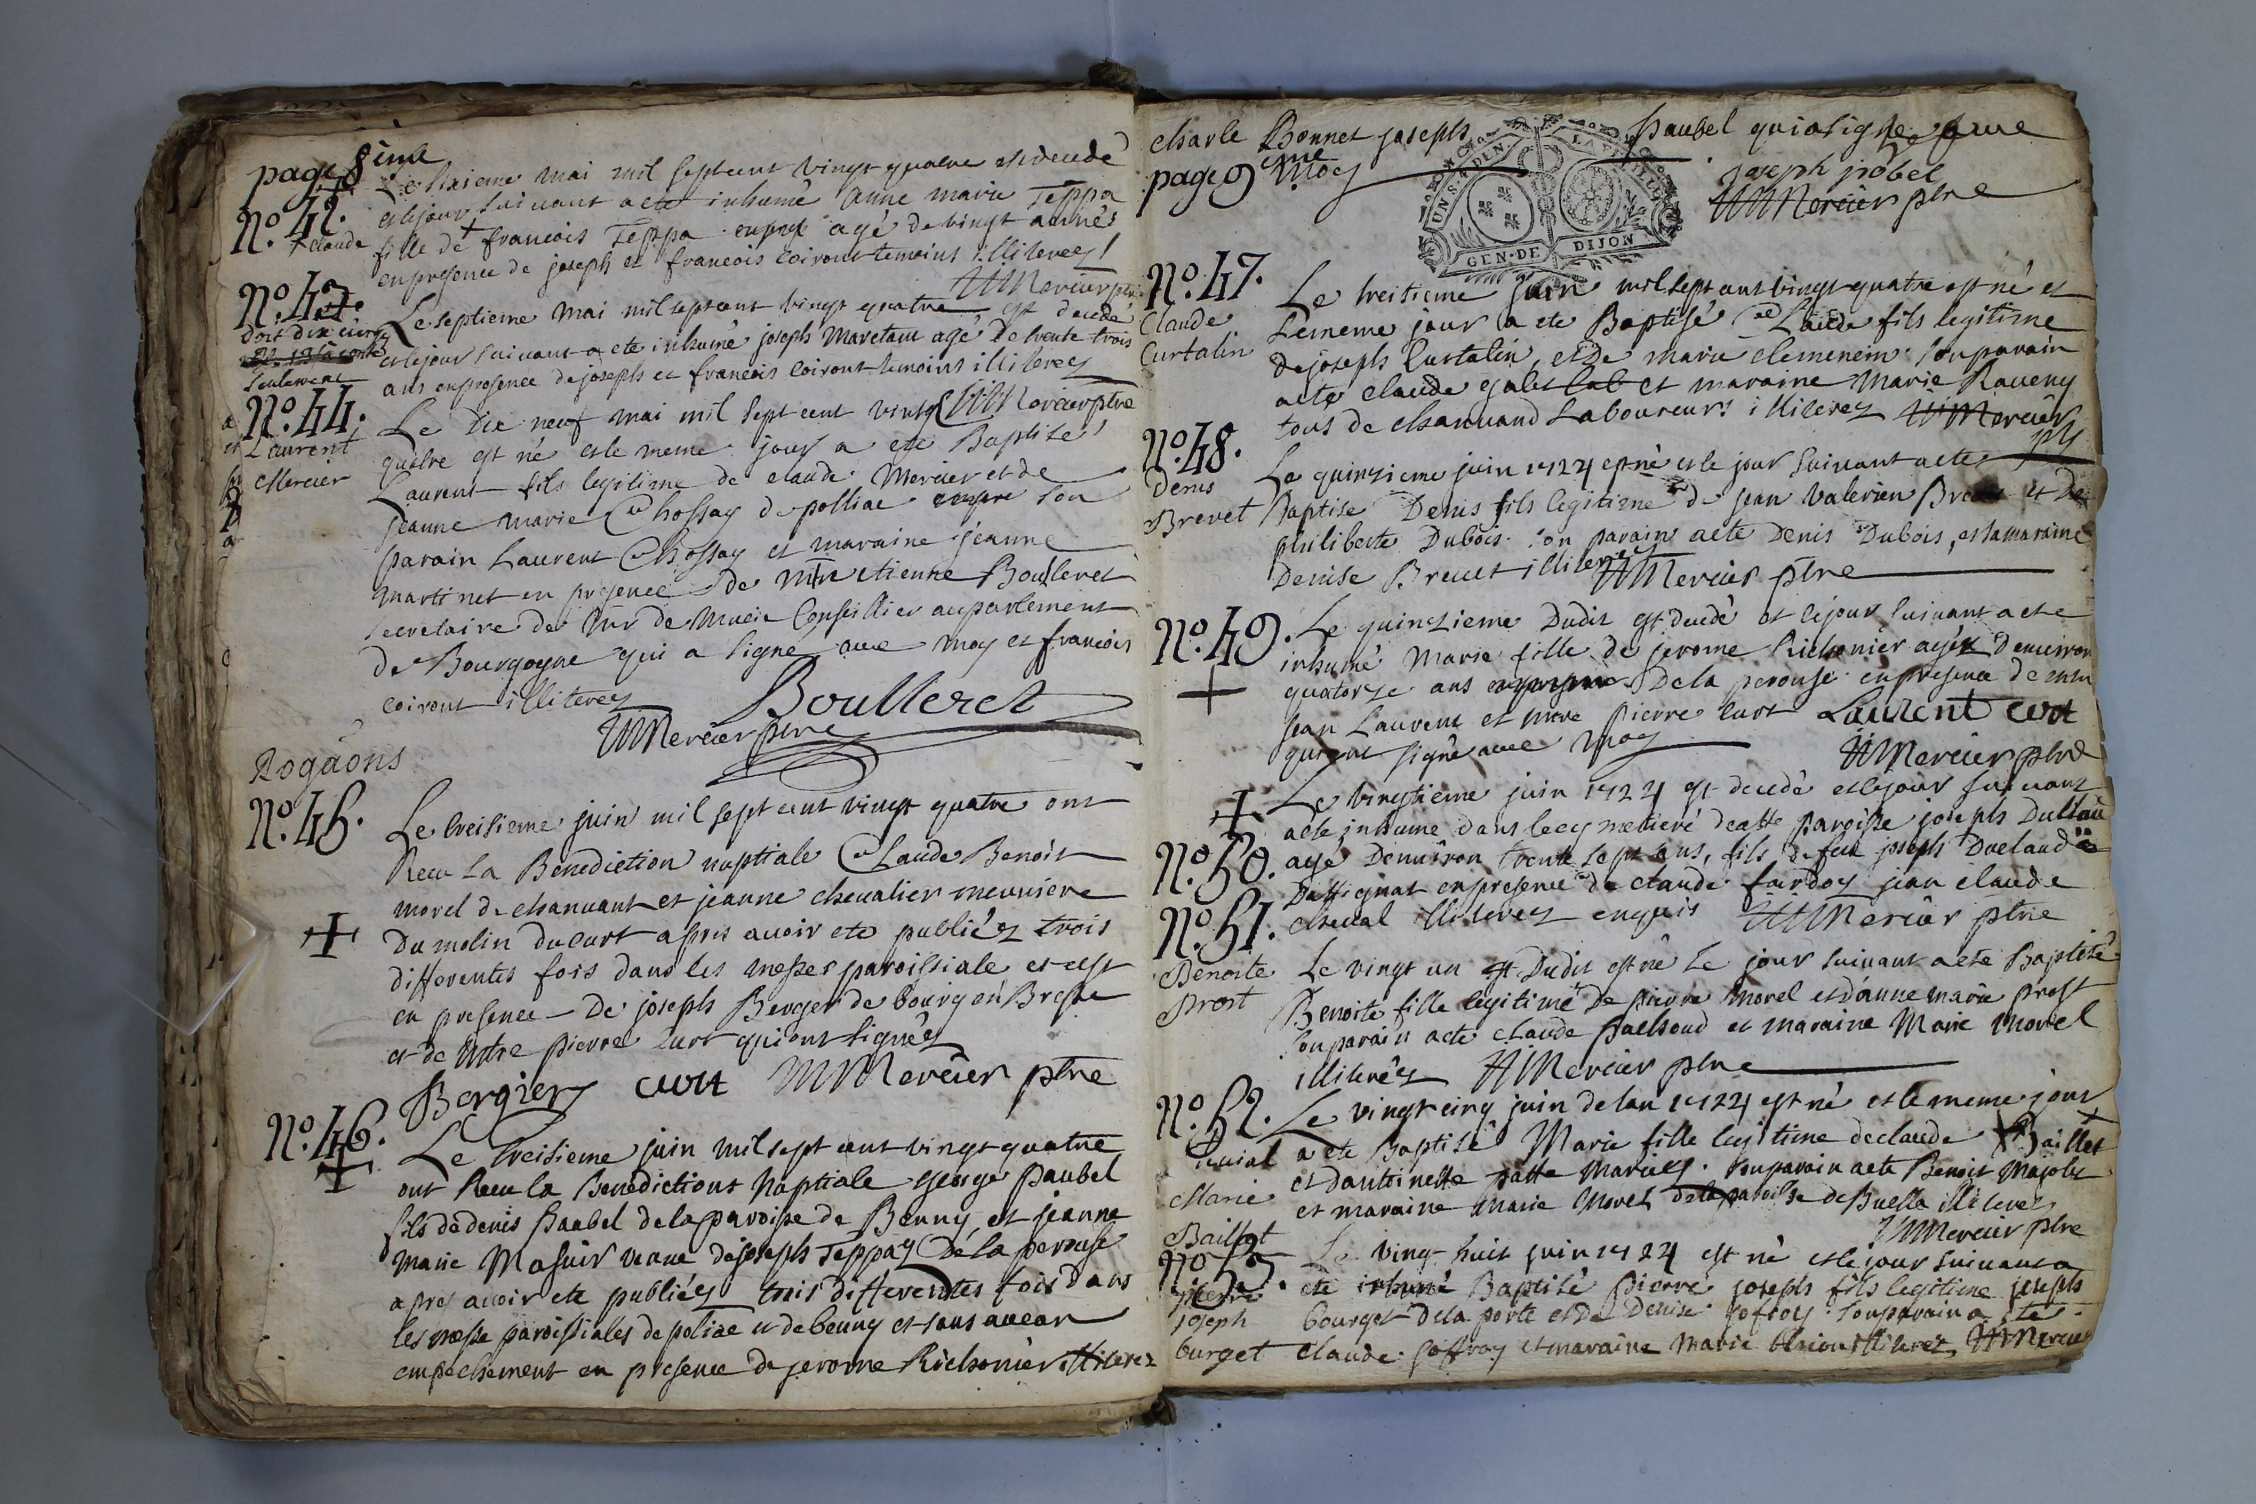 page 8ime
No. 42.
Le sixieme mai mil septcent vingt quatre est decede
et lejour suivant a ete inhumé anne marie Teppa
+ claude
fille de + francois Teppa agé de vingt années
en presence de joseph et francois Coiront temoins illiterez
MMercier ptre
No. 43.
Le septieme mai mil septcent vingt quatre est decedé
et lejour suivant a ete inhumé joseph Maretan agé de trente trois
ans en presence de joseph et francois Coiront temoins illiterez
seulement
No. 44.
Laurent
Mercier
Le dix neuf mai mil sept cent vingt MMercier ptre
quatre est né et le meme jour a ete Baptisé
Laurent fils legitime de claude Mercier et de
jeanne marie Chossay de polliac son
parain Laurent Chossay et maraine jeanne
martinet en presence de Mtre etienne Boulleret
secretaire de Mr de Mucie Conseillier au parlement
de Bourgogne qui a signé avec moy et francois
coiront illiterez
Boulleret
MMercier ptre
Rogaons
No. 45.
Le treisieme juin mil sept cent vingt quatre ont
Receu La Benediction nuptiale Claude Benoit
morel de chanvant et jeanne chevalier meuniere
+
Du molin du curt apres avoir ete publiéez trois
differentes fois dans les messes paroissiale et cest
en presence De joseph Berger de bourg en Bresse
et de Mtre pierre curt qui ont signéez
Bergier curt MMercier ptre
No. 46.
+
Le treisieme juin mil sept cent vingt quatre
ont Receu la Benedictions Nuptiale george paubel
fils de denis paubel de la paroisse de Benny et jeanne
marie Masuir veuve de joseph Teppay De la perouse
apres avoir ete publiéez trois differentes fois dans
les messe paroissiales de poliac et de benny et sans aucun
empechement en presence de jerome Richonier illiterez
charle Bonnet joseph paubel qui a signe avec
page 9eme moy
joseph pobel
MMercier ptre
GEN. DE DIJON
No. 47.
Claude
Curtalin
Le treisieme juin mil sept cent vingt quatre est né et
Lememe jour a ete Baptisé Claude fils legitime
de joseph Curtalin, et de marie clemenein son parain
a ete claude galet et maraine Marie Raveny
tous de chanvand Laboureurs illiterez MMercier
ptre
No. 48.
Denis
Brevet
Le quinzieme juin 1724 est né et le jour suivant a ete
Baptise Denis fils legitime de jean Valerien Brevet et de
philiberte Dubois son parain a ete Denis Dubois, et sa maraine
Denise Brevet illiterez MMercier ptre
No. 49.
+
Le quinzieme Dudit est decedé et lejour suivant a ete
inhumé Marie fille de jerome Richonier agée Denviron
quatorze ans De la perouse en presence de mtre
jean Laurent et mtre pierre curt Laurent curt
qui ont signé avec moy
MMercier ptre
+
No. 50.
Le vingtieme juin 1724 est decedé et lejour suivant
a ete inhume dans le cymetiere de cette paroisse joseph
agé Denviron trente sept ans, fils de feu joseph Duclaud
Dattignat en presence de claude jean claude
cheval illiterez enquis MMercier ptre
No. 51.
Benoite
Prost
Le vingt un Dudit est né Le jour suivant a ete Baptisé
Benoite fille legitime De pierre Morel et danne marie prost
son parain a ete claude et maraine Marie Morel
illiterez MMercier ptre
No. 52.
Marie
Baillet
Le vingt cinq juin de lan 1724 est né et le meme jour
a ete Baptisé Marie fille legitime de claude Baillet
et dantoinette patte Mariez. son parain a ete Benoit
et maraine Marie Morel de la paroisse de Buella illiterez
MMercier ptre
No. 53.
pierre
joseph
burget
Le vingt huit juin 1724 est né et le jour suivant a
ete inhumé Baptisé pierre joseph fils legitime joseph
bourget De la porte et de Denise joffroy son parain a ete
Claude joffroy et maraine Marie illiterez MMercier